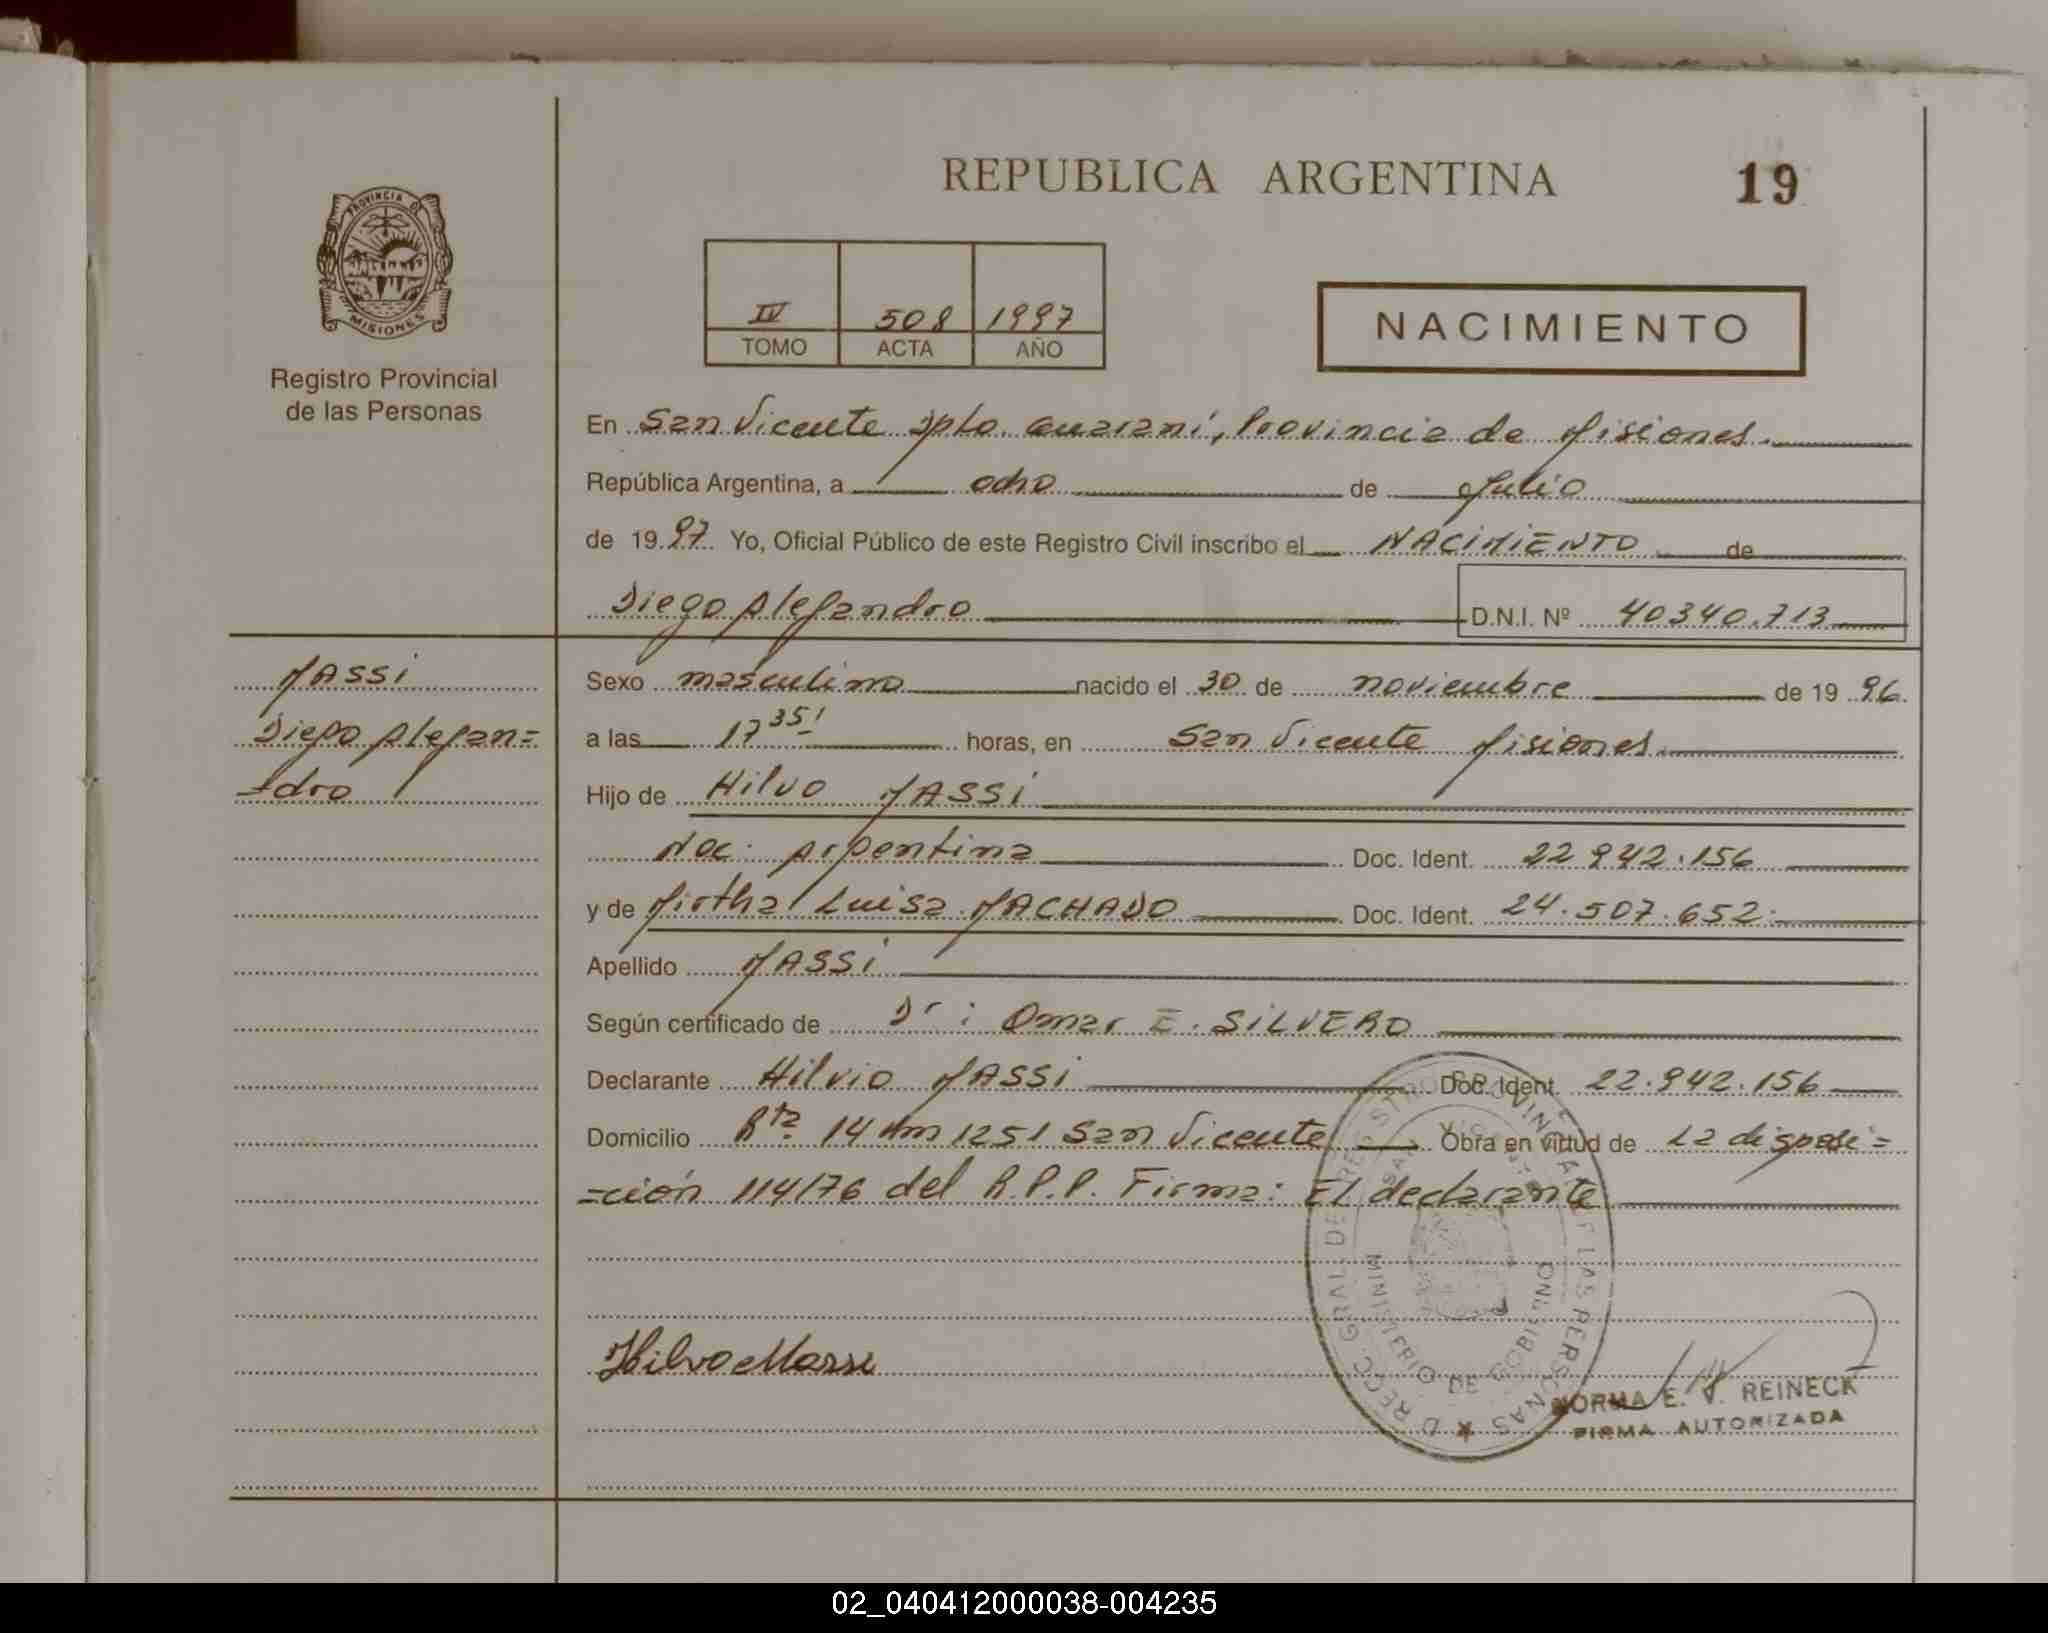 REPUBLICA ARGENTINA
19
PROVINCIA DE
MISIONES
Registro Provincial
de las Personas
IV 508 1997
TOMO ACTA AÑO
NACIMIENTO
En San Vicente Dpto. Guaraní, Provincia de Misiones.
República Argentina, a ocho de Julio
de 1997 Yo, Oficial Público de este Registro Civil inscribo el NACIMIENTO de
Diego Alejandro D.N.I. Nº 40340.713
MASSI
Diego Alejan=
=dro
Sexo masculino nacido el 30 de noviembre de 1996.
a las 17 35' horas, en San Vicente Misiones.
Hijo de Hilvo MASSI
Nac: Argentina Doc. Ident. 22.942.156
y de Mirtha Luisa MACHADO Doc. Ident. 24.507.652.
Apellido MASSI
Según certificado de Dr: Omar E. SILVERO
Declarante Hilvio MASSI Doc. Ident. 22.942.156
Domicilio Rta 14 Km 1251 San Vicente Obra en virtud de la disposi=
=ción 114/76 del R.P.P. Firma: El declarante
Hilvo Massi
DIRECC. GRAL. DEL REGISTRO PROVINCIAL DE LAS PERSONAS
MINISTERIO DE GOBIERNO
NORMA E. V. REINECK
FIRMA AUTORIZADA
02_040412000038-004235